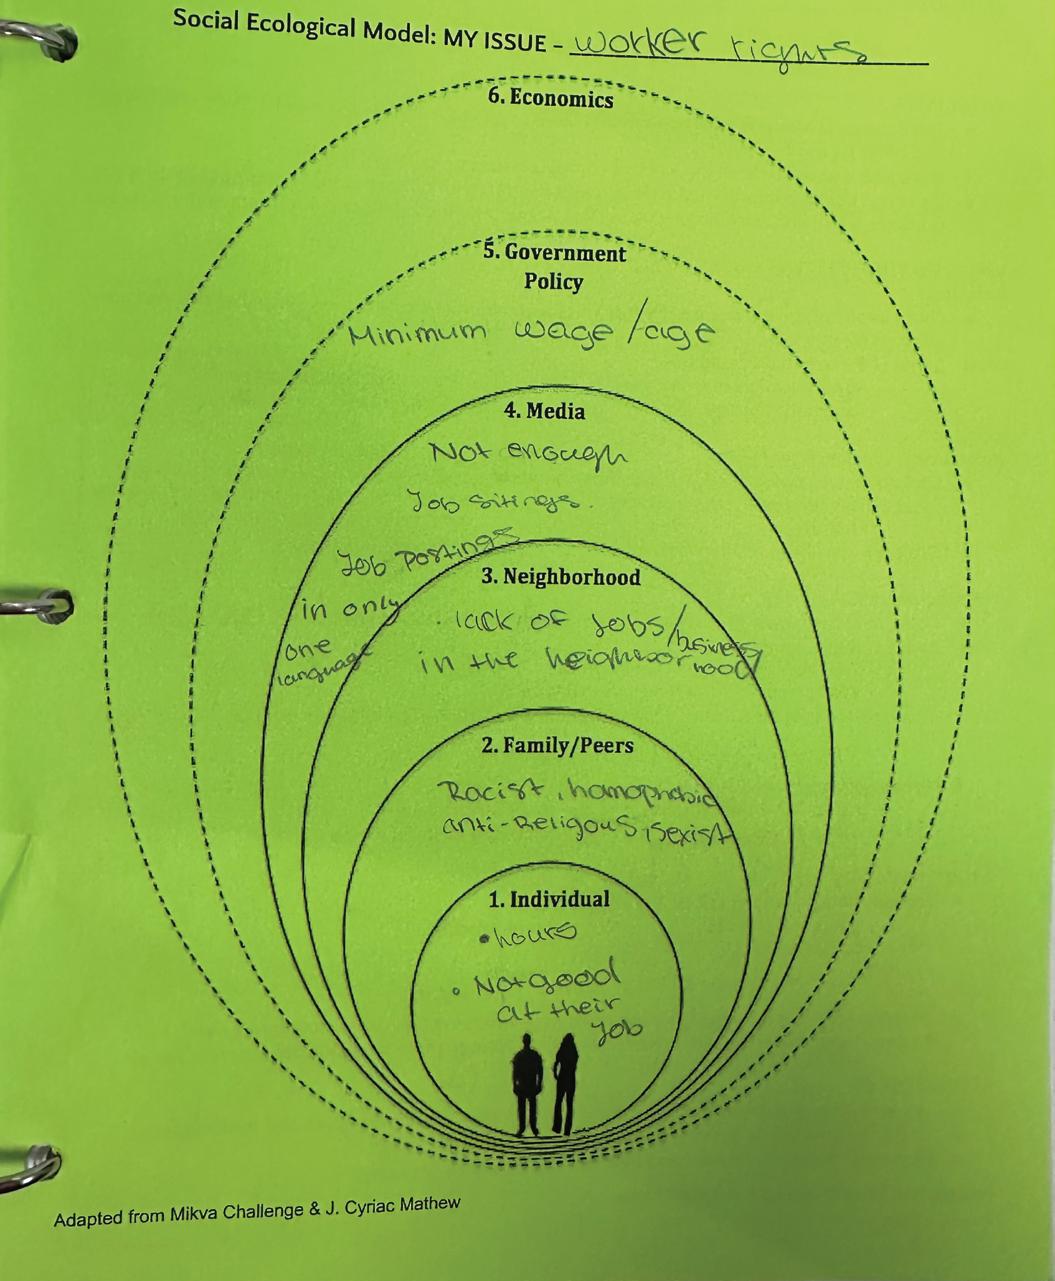 Social Ecological Model: MY ISSUE - worker rights
6. Economics
5. Government
Policy
Minimum wage/age
4. Media
Not enough
Job sitings.
Job Postings
in only
one
language
3. Neighborhood
· lack of Jobs/business
in the neighborhood
2. Family/Peers
Racist, homophobic
anti-Religous, sexist
1. Individual
• hours
• Not good
at their
Job
Adapted from Mikva Challenge & J. Cyriac Mathew